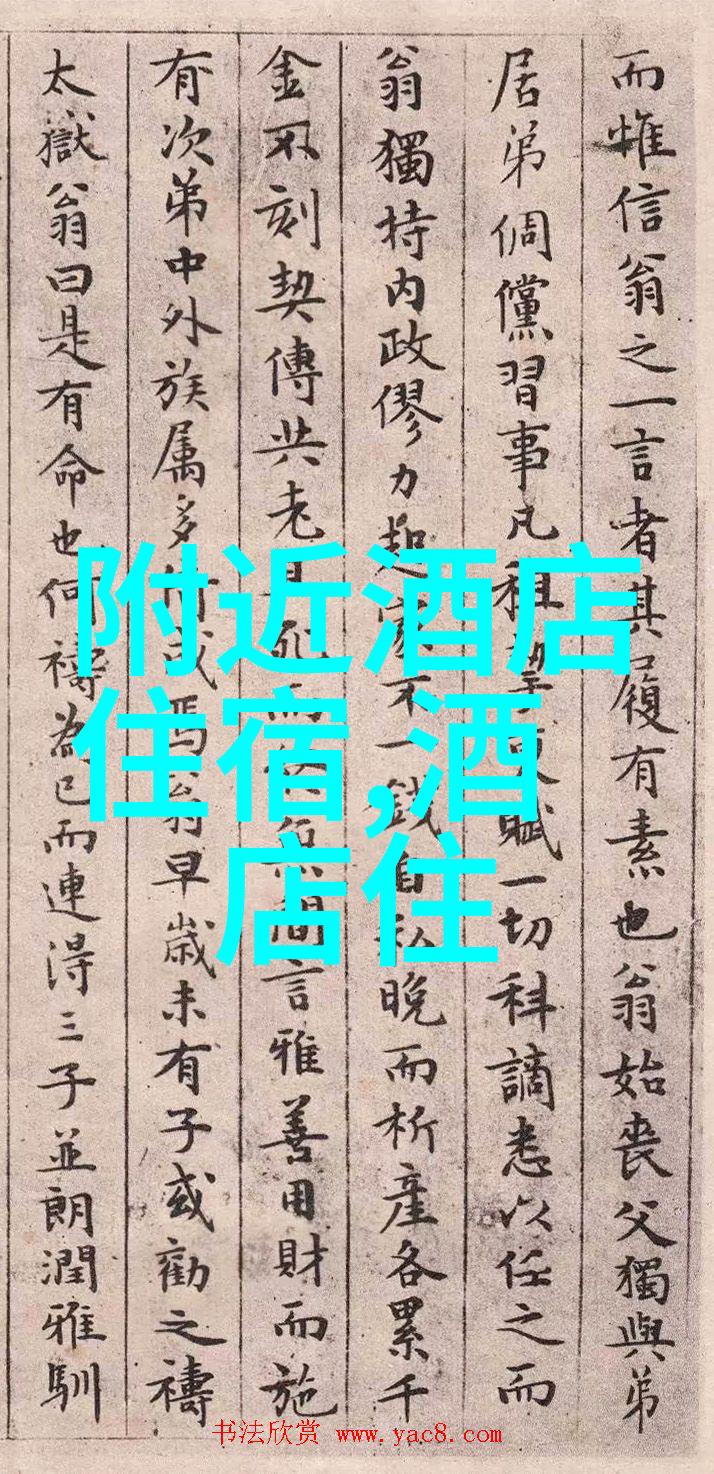 而惟信翁之一言者其履有素也翁始丧父獨與弟
居弟倜儻習事凡租挈更賦一切科謫悉以任之而
翁獨持内政僇力起家不一錢自私晚而析產各累千
金不刻契傳共老且死而
間言雅善用財而施
有次弟中外族属多
成焉翁早歲未有子或勸之禱
太嶽翁曰是有命也何禱為已而連得三子並朗潤雅馴
附近酒店
住宿,酒
店住
书法欣赏 www.yac8.com